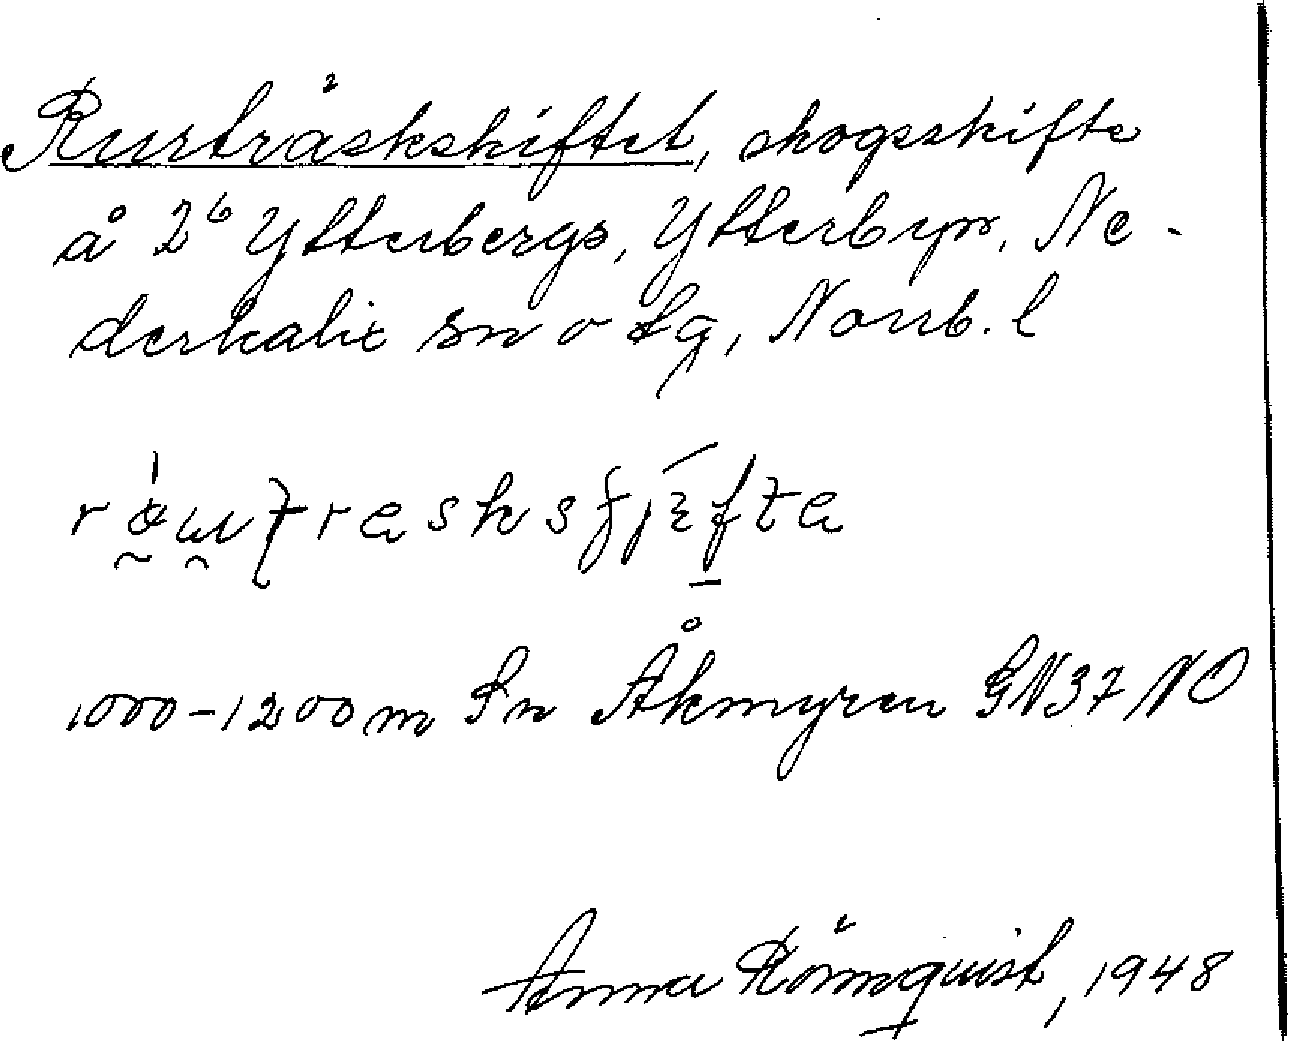 Rurträskskiftet, skogsskifte
å 2⁶ Ytterbergs, Ytterbyn, Ne-
derkalix sn o tg, Norrb. l
1000-1200 m Sn Åkmyren GN37 NO
Anna Rönnquist, 1948